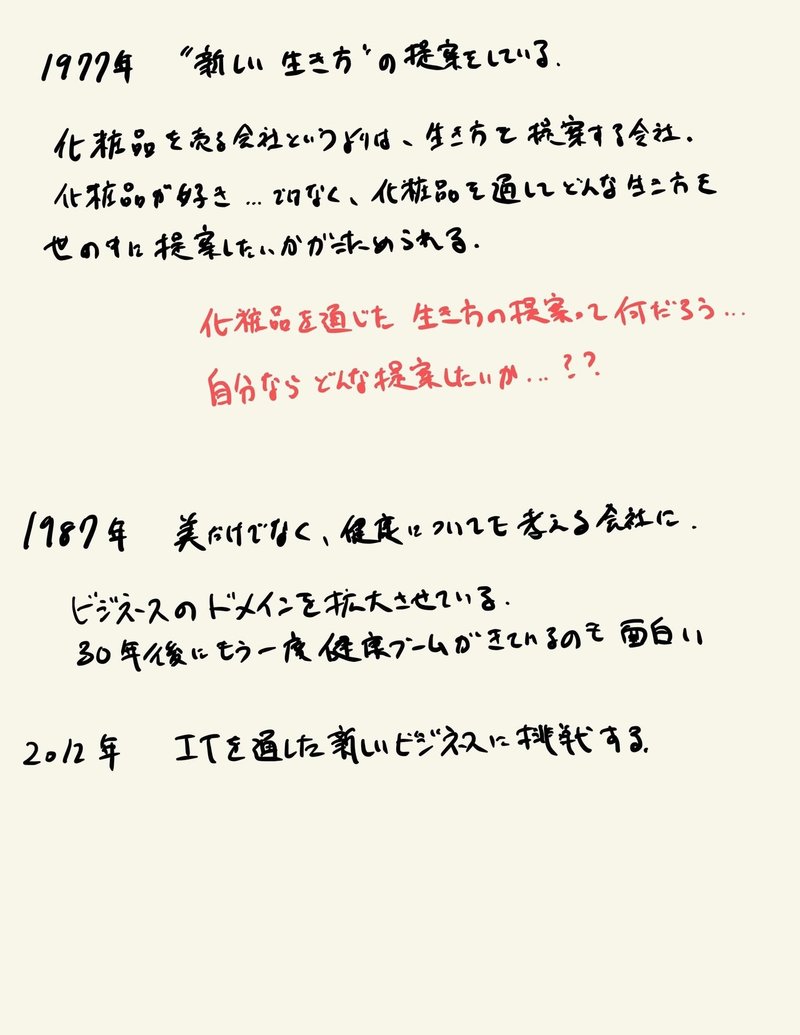 1977年 "新しい 生き方"の提案をしている.
化粧品を売る会社というよりは、生き方を提案する会社.
化粧品が好き…でなく、化粧品を通してどんな生き方を
世の中に提案したいかが求められる.
化粧品を通じた 生き方の提案って何だろう…
自分なら どんな提案したいか…??
1987年 美だけでなく、健康についても考える会社に.
ビジネースのドメインを拡大させている.
30年後にもう一度健康ブームがきているのも面白い
2012年 ITを通した新しいビジネースに挑戦する.